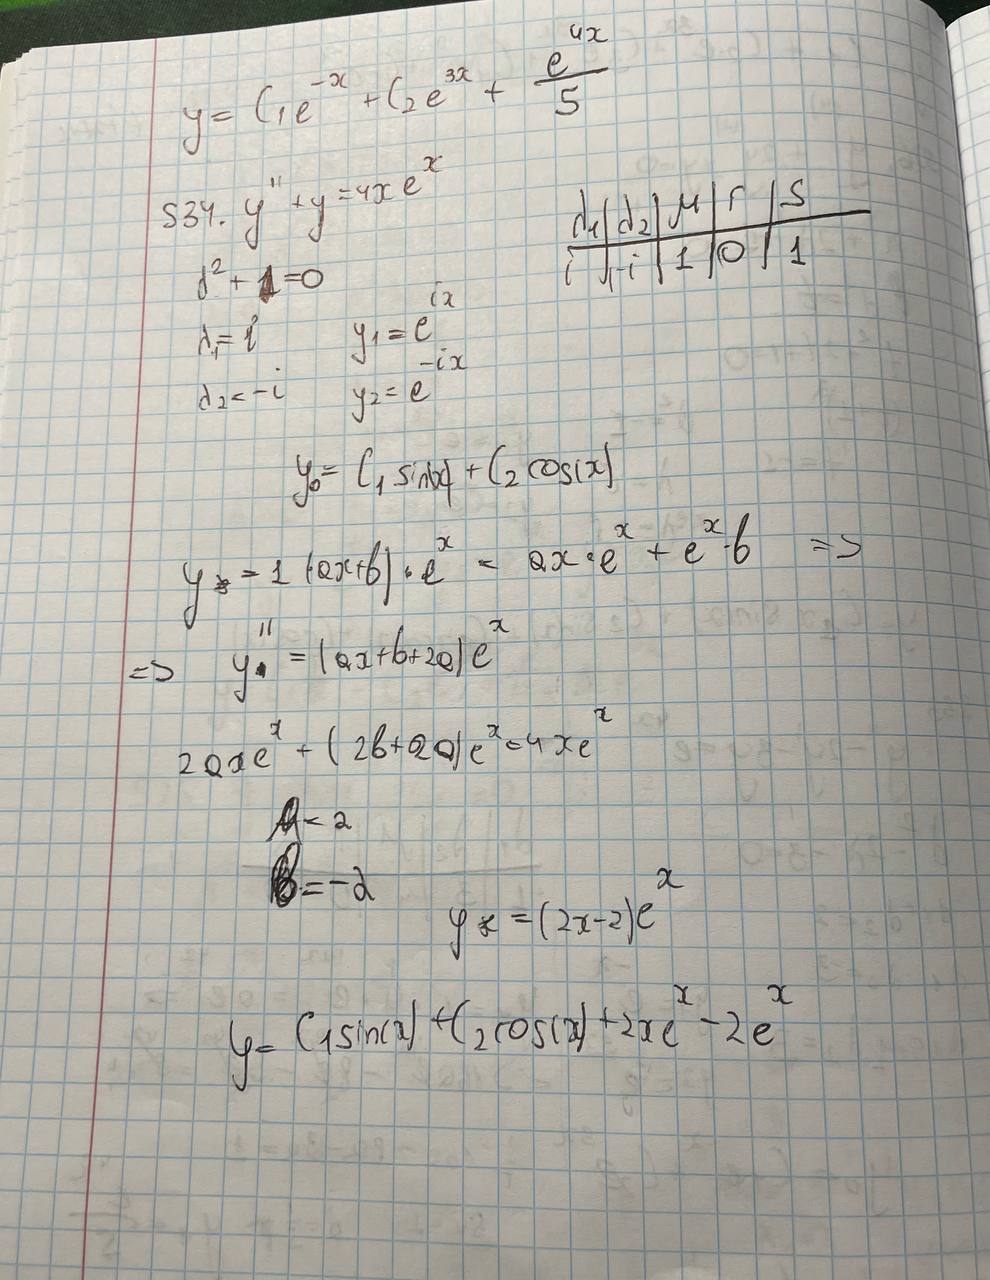 y = C₁e^{-x} + C₂e^{3x} + e^{4x}/5
534. y'' + y = 4x e^x
λ₁ | λ₂ | μ | r | S
i | -i | 1 | 0 | 1
λ² + 1 = 0
λ₁ = i y₁ = e^{ix}
λ₂ = -i y₂ = e^{-ix}
y₀ = C₁ sin(x) + C₂ cos(x)
y* = 1 (ax+b)·e^x = ax·e^x + e^x·b =>
=> y'' = (ax+b+2a)e^x
2axe^x + (2b+2a)e^x = 4xe^x
A = 2
B = -2
y* = (2x-2)e^x
y = C₁sin(x) + C₂cos(x) + 2xe^x - 2e^x